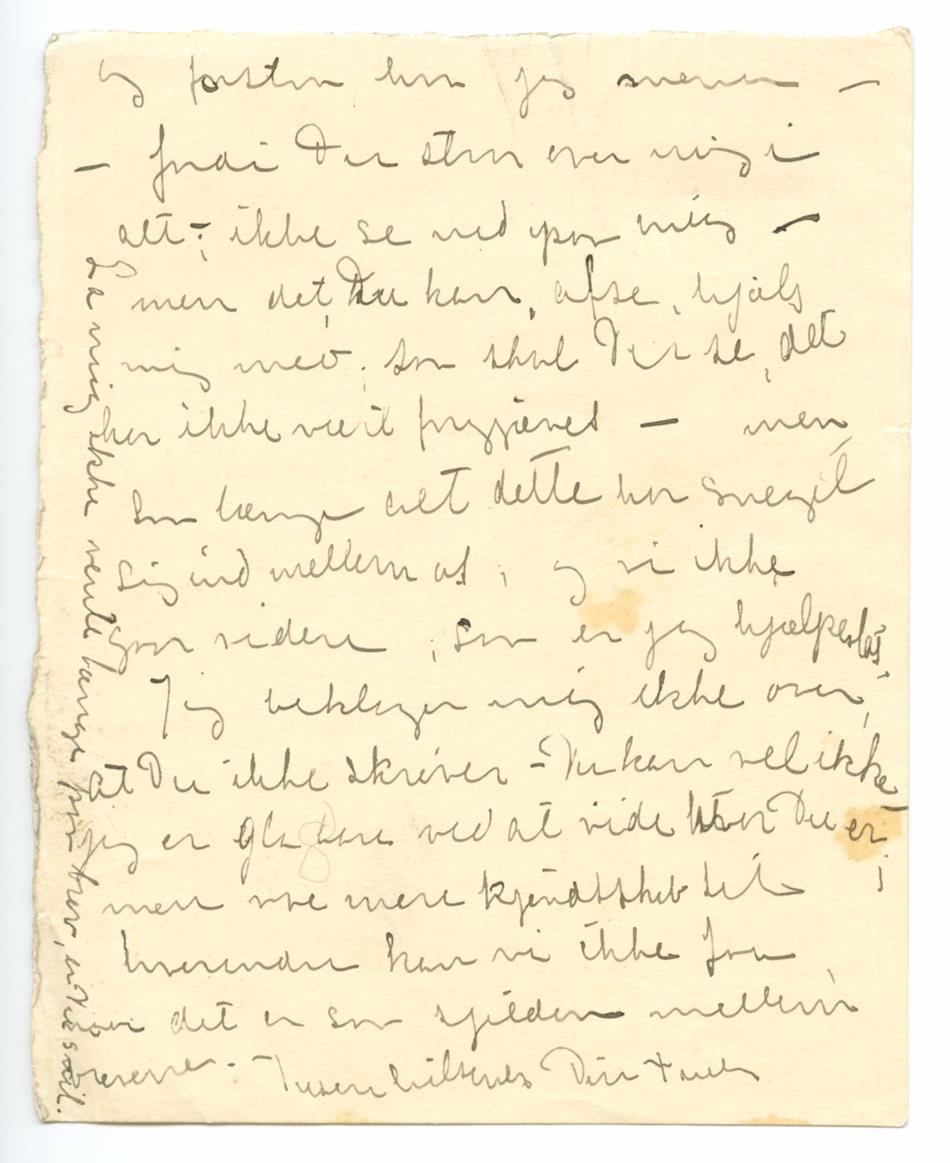 og forstaa hva jeg mener –
– fordi Du staar over mig i
alt –, ikke se ned paa mig –
men det, Du kan, afse, hjælp
mig med, saa skal Du se, det
har ikke været forgjæves – men,
saa længe alt dette har sneget
sig ind mellem os, og vi ikke
gaar videre, saa er jeg hjælpesløs,
Jeg beklager mig ikke over,
at Du ikke skriver – Du kan vel ikke,
jeg er glad bare ved at vide hvor Du er,
men mere kjendskab til
hverandre kan vi ikke faa,
det er saa sjelden mellem
–. – Tusen hilsener Din
La mig ikke vente længe paa brev, er Du snil.